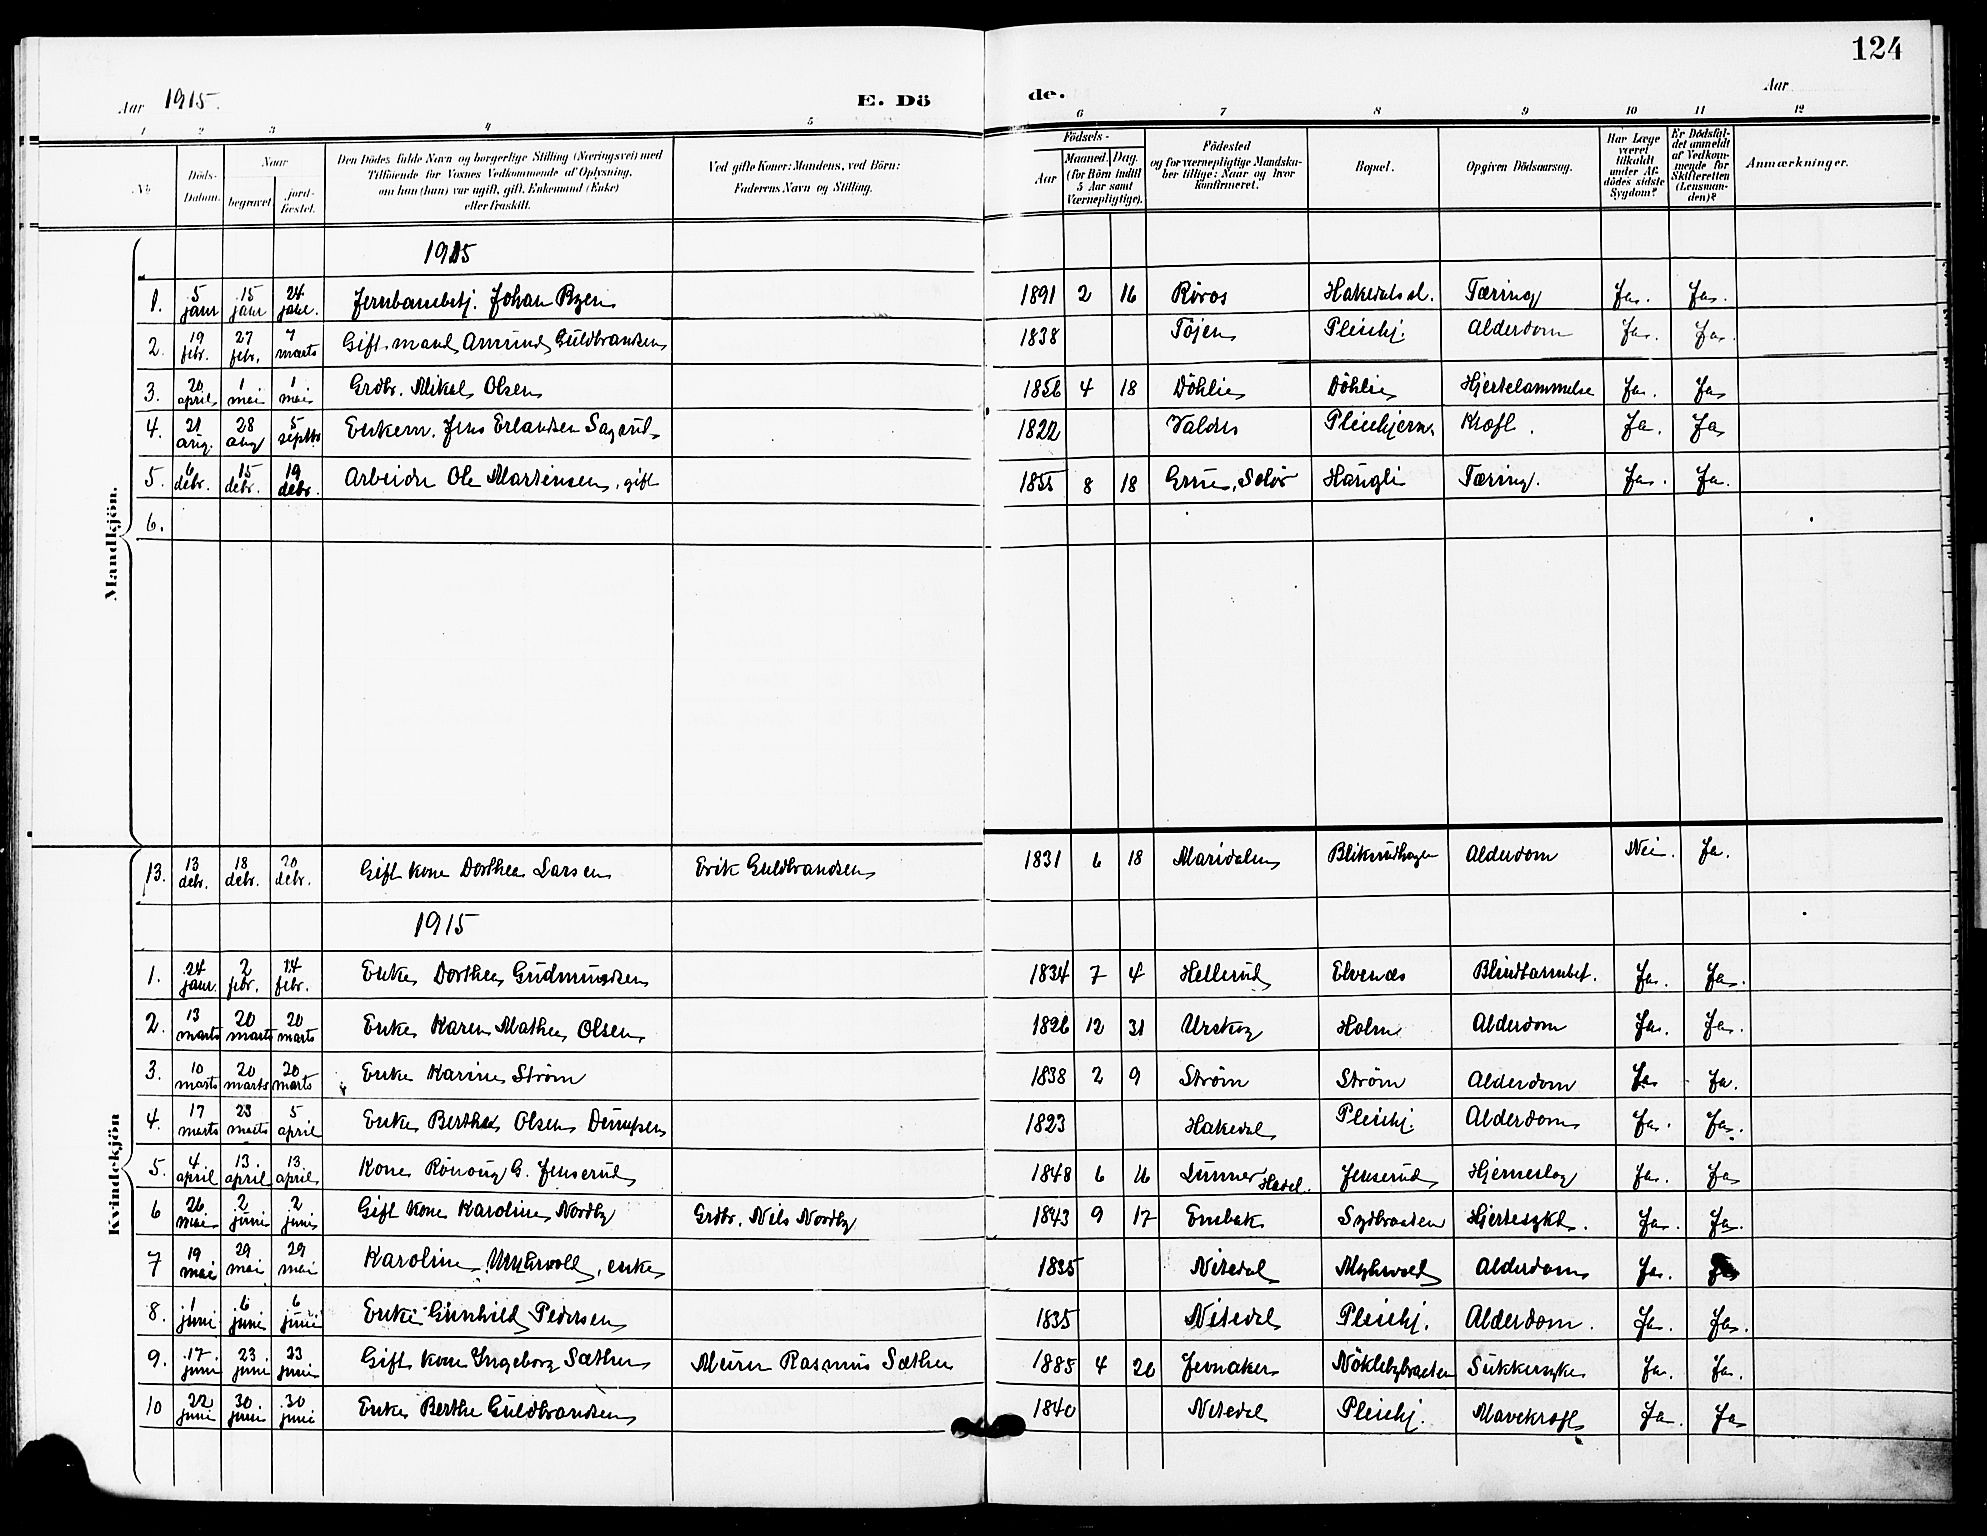 124
Aar 1915.
E. Dö de.
Aar
1 2 3 4 5 6 7 8 9 10 11 12
No.
Döds-Datum.
Naar
begravet
jord-fæstet.
Den Dödes fulde Navn og borgerlige Stilling (Næringsvei) med
Tilföiende for Voxnes Vedkommende af Oplysning,
om han (hun) var ugift, gift, Enkemand (Enke)
eller fraskilt.
Ved gifte Koner: Mandens, ved Börn:
Faderens Navn og Stilling.
Födsels-
Aar
Maaned. Dag.
(for Börn indtil
5 Aar samt
Værnepligtige).
Födested
og for værnepligtige Mandska-
ber tillige: Naar og hvor
konfirmeret.
Bopæl.
Opgiven Dödsaarsag.
Har Læge
været
tilkaldt
under Af-
dödes sidste
Sygdom?
Er Dödsfal-
det anmeldt
af Vedkom-
mende for
Skifteretten
(Lensman-
den)?
Anmærkninger.
Mandkjön.
1915
1. 5 janr 15 janr 24 janr. Jernbanebetj. Johan Ryen 1891 2 16 Röros Hakedal st. Tæring Ja. Ja.
2. 19 febr. 27 febr. 7 marts Gift mand Amund Guldbrandsen 1838 Töjen Pleiehj. Alderdom Ja. Ja.
3. 20 april 1 mai 1 mai Grdbr. Mikal Olsen 1856 4 18 Döhlie Döhlie Hjertelammelse Ja. Ja
4. 21 aug. 28 aug 5 septbr Enkem. Jens Erlandsen Sagrud 1822 Valders Pleiehjem. Kræft. Ja. Ja
5. 6 debr. 15 debr. 19 debr. Arbeider Ole Martinsen, gift 1855 8 18 Grue, Solör Haugli Tæring. Ja. Ja.
6.
Kvindekjön
13. 13 debr. 18 debr. 20 debr. Gift kone Dorthea Larsen Erik Guldbrandsen 1831 6 18 Maridalen Blikrudhagen Alderdom Nei. Ja.
1915
1. 24 janr. 2 febr. 14 febr. Enke Dorthea Gudmundsen 1834 7 4 Hellerud Elvenæs Blindtarmbet. Ja. Ja.
2. 13 marts 20 marts 20 marts Enke Karen Mathea Olsen 1826 12 31 Urskog Holm Alderdom Ja. Ja.
3. 10 marts 20 marts 20 marts Enke Karine Ström 1838 2 9 Ström Ström Alderdom Ja Ja.
4. 17 marts 23 marts 5 april Enke Berthea Olsen 1823 Hakedal Pleiehj. Alderdom Ja. Ja.
5. 4 april 13 april 13 april Kone Rönoug G. Jenserud 1848 6 16 Lunner Hadel. Jenserud Hjerneslag Ja. Ja
6 26 mai 2 juni 2 juni Gift kone Karoline Nordby Grdbr. Nils Nordby 1843 9 17 Enebak Sydbraaten Hjertesykd. Ja. Ja.
7 19 mai 29 mai 29 mai Karoline Myhrvold, enke 1835 Nitedal Myhrvold Alderdom Ja. Ja
8. 1 juni 6 juni 6 juni Enke Gunhild Pedersen 1835 Nitedal Pleiehj. Alderdom. Ja. Ja.
9. 17 juni 23 juni 23 juni Gift kone Ingeborg Sæther Murer Rasmus Sæther 1885 4 20 Jevnaker Nöklebybraaten Sukkersyke Ja. Ja.
10 22 juni 30 juni 30 juni Enke Berthe Guldbrandsen 1840 Nitedal Pleiehj. Mavekræft Ja. Ja